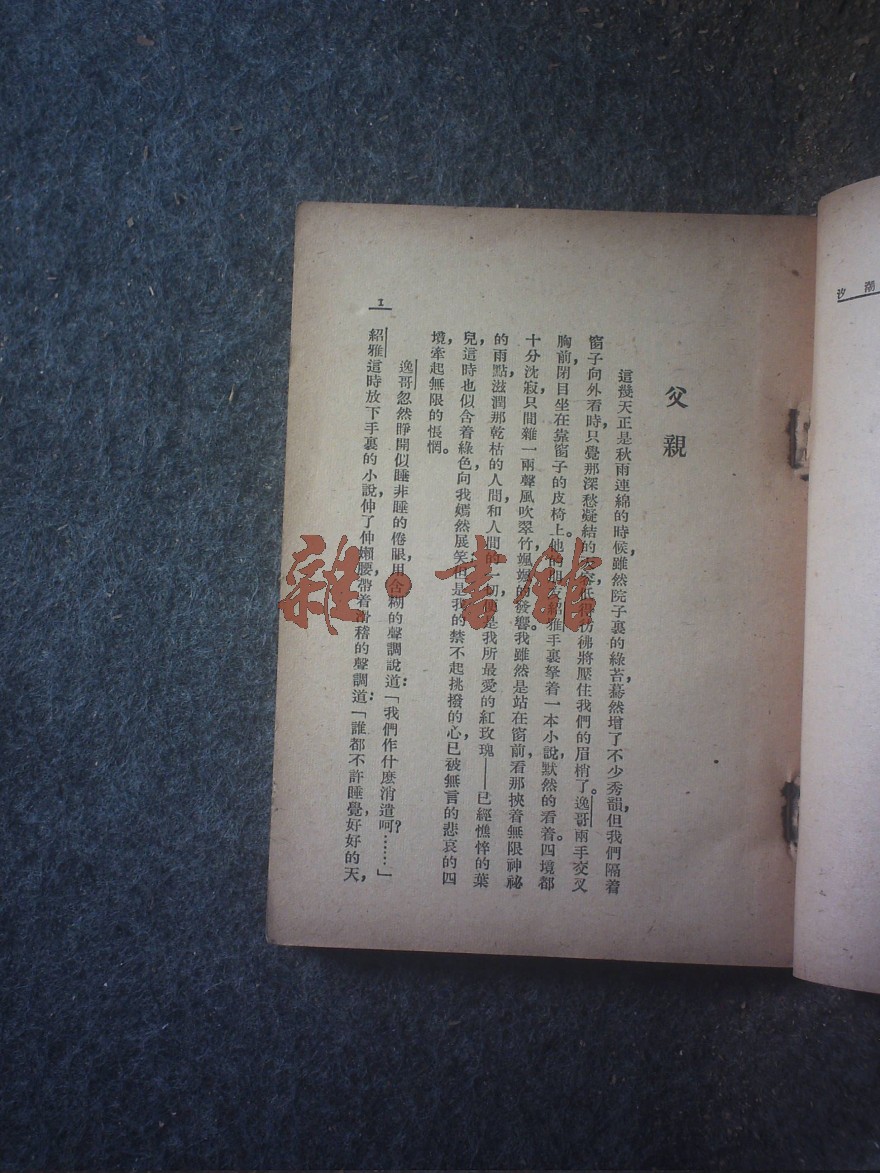 潮汐
父親
這幾天正是秋雨連綿的時候，雖然院子裏的綠苔，驀然增了不少秀韻，但我們隔着
窗子向外看時，只覺那深愁凝結的天容，低得彷彿將壓住我們的眉梢了。逸哥兩手交叉
胸前，閉目坐在靠窗子的皮椅上。他的朋友紹雅手裏拏着一本小說，默然的看着。四境都
十分沈寂，只間雜一兩聲風吹翠竹，颯颯的發響。我雖然是站在窗前，看那挾着無限神祕
的雨點，滋潤那乾枯的人間，和人間的一切，便是我所最愛的紅玫瑰——已經憔悴的葉
兒，這時也似含着綠色，向我嫣然展笑；但是我的禁不起挑撥的心，已被無言的悲哀的四
境，牽起無限的悵惘。
逸哥忽然睜開似睡非睡的倦眼，用含糊的聲調說道：「我們作什麽消遣呵？……」
紹雅這時放下手裏的小說，伸了伸嬾腰，帶着滑稽的聲調道：「誰都不許睡覺，好好的天，
1
雜·書館